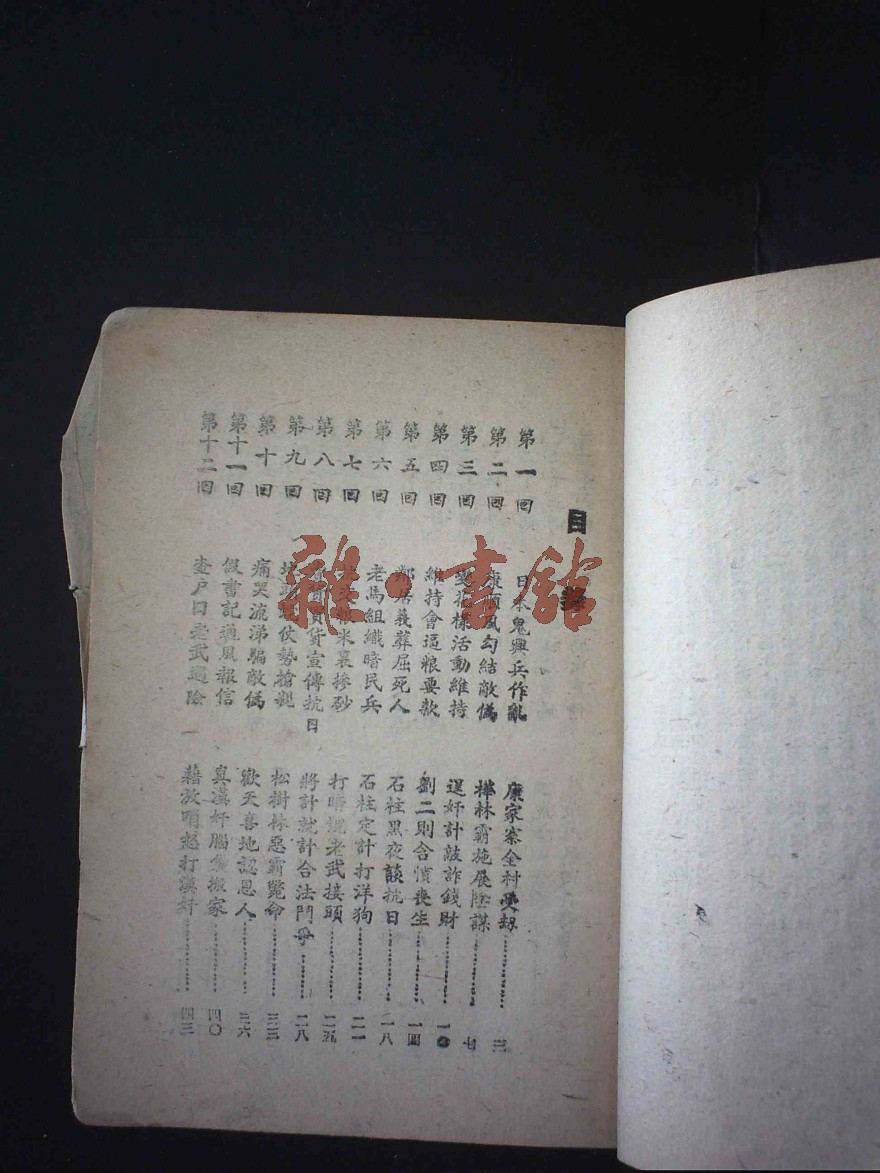 目錄
第一回 日本鬼興兵作亂 康家寨全村受劫 三
第二回 康順風勾結敵偽 樺林霸施展陰謀 七
第三回 變花樣活動維持 逞奸計敲詐錢財 一〇
第四回 維持會逼粮要款 劉二則含憤喪生 一四
第五回 鄰居義葬屈死人 石柱黑夜談抗日 一八
第六回 老馬組織暗民兵 石柱定計打洋狗 二一
第七回 粮米裏摻砂 打暗棍老武接頭 二五
第八回 貨宣傳抗日 將計就計合法鬥爭 二八
第九回 地頭蛇仗勢搶親 松樹林惡霸斃命 三三
第十回 痛哭流涕騙敵偽 歡天喜地認恩人 三六
第十一回 假書記通風報信 真漢奸腦袋搬家 四〇
第十二回 查戶口老武遇險 藉放哨怒打漢奸 四三
雜·書館